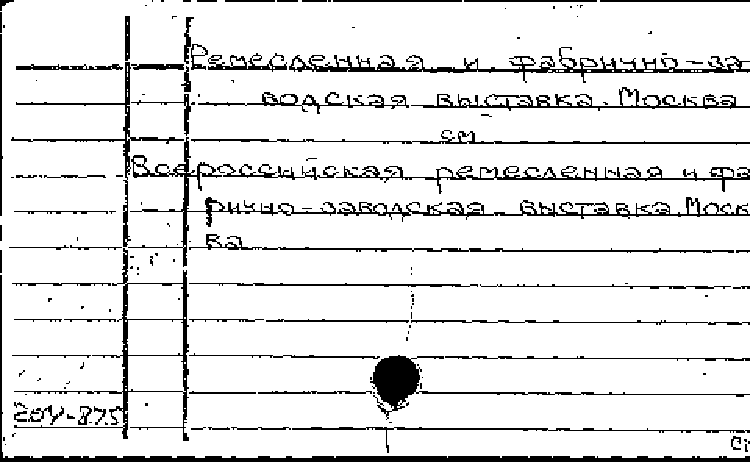 Ремесленная и фабрично-за
водская выставка. Москва
см
Всероссийская ремесленная и фа
рично-заводская выставка. Моск
ва
204-875